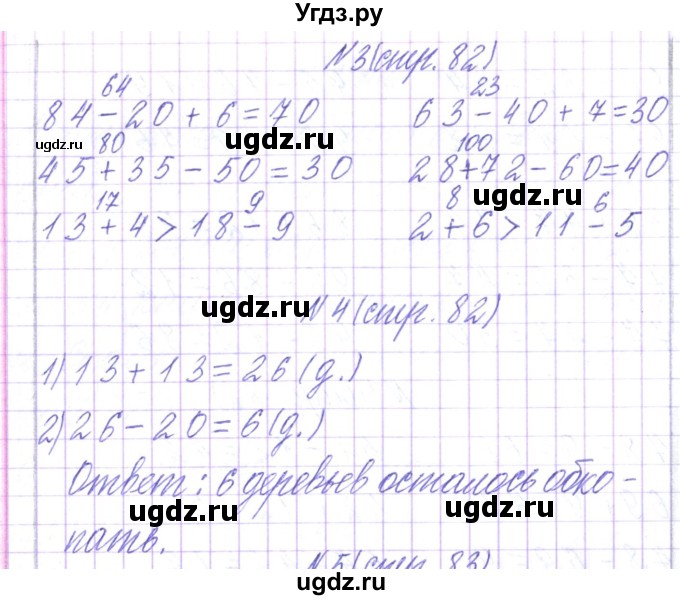 Угдз.ру
№3(стр. 82)
64 23
84 - 20 + 6 = 70 63 - 40 + 7 = 30
ugdz.ru ugdz.ru
80 100
45 + 35 - 50 = 30 28 + 72 - 60 = 40
ugdz.ru
17 9 8 6
13 + 4 > 18 - 9 2 + 6 > 11 - 5
ugdz.ru
№4(стр. 82)
1) 13 + 13 = 26 (д.)
ugdz.ru
2) 26 - 20 = 6 (д.)
Ответ: 6 деревьев осталось обко-
ugdz.ru ugdz.ru
пать.
№5(стр. 83)
ugdz.ru